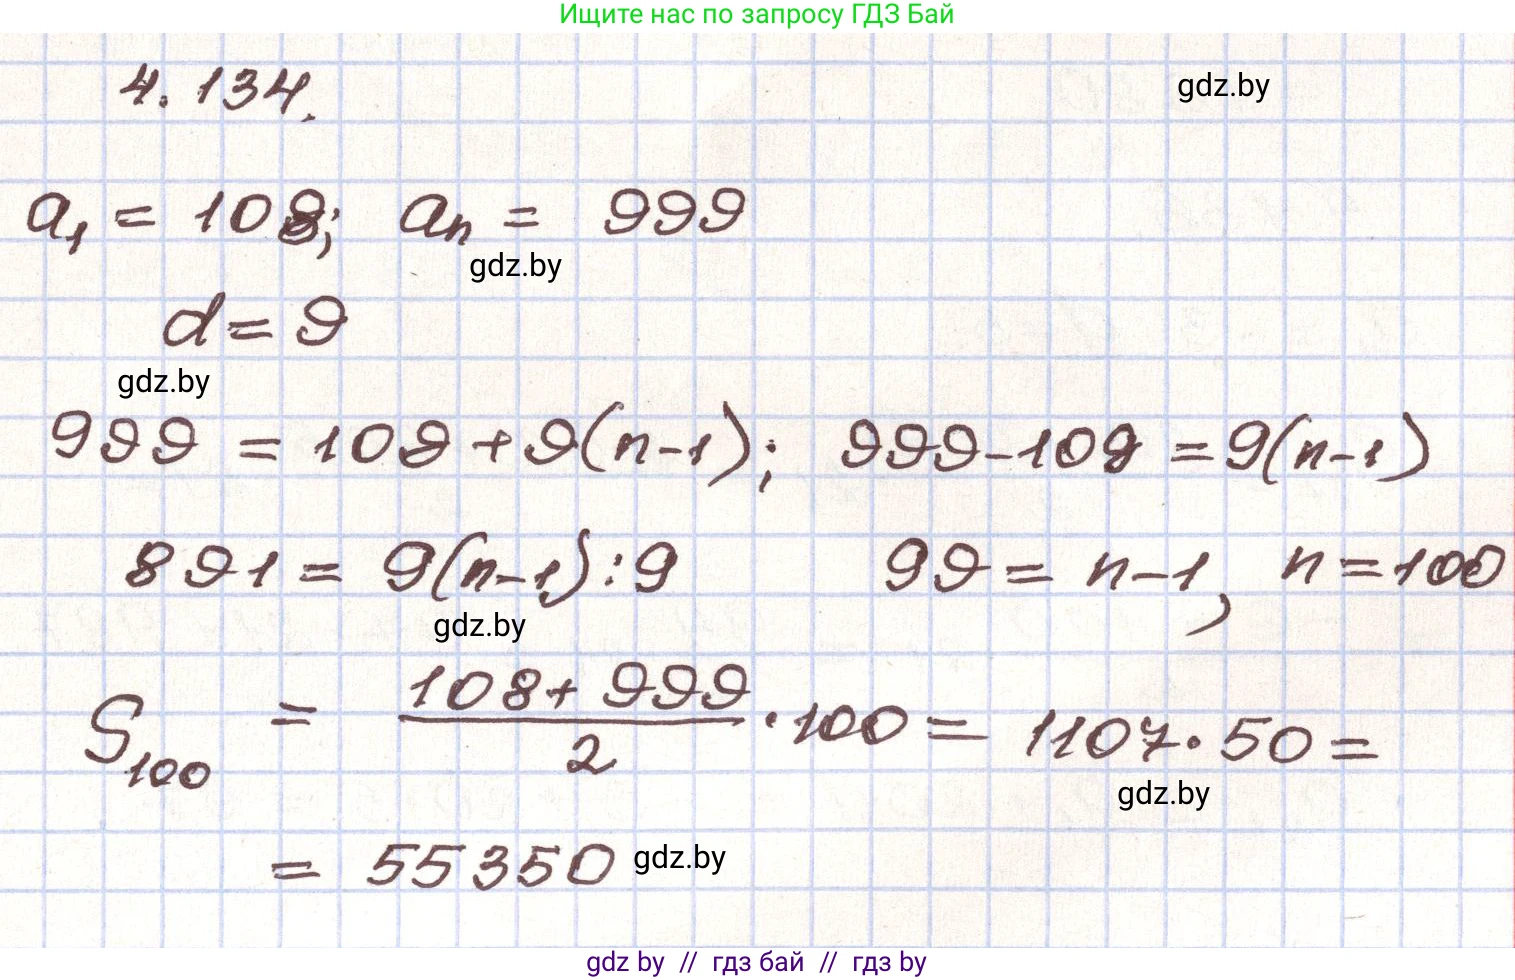 Ищите нас по запросу ГДЗ Бай
4.134.
gdz.by
a₁ = 108; aₙ = 999
gdz.by
d = 9
gdz.by
999 = 108 + 9(n-1); 999-108 = 9(n-1)
891 = 9(n-1) :9 99 = n-1, n = 100
gdz.by
S₁₀₀ = \frac{108+999}{2} · 100 = 1107 · 50 =
gdz.by
= 55350 gdz.by
gdz by // гдз бай // гдз by